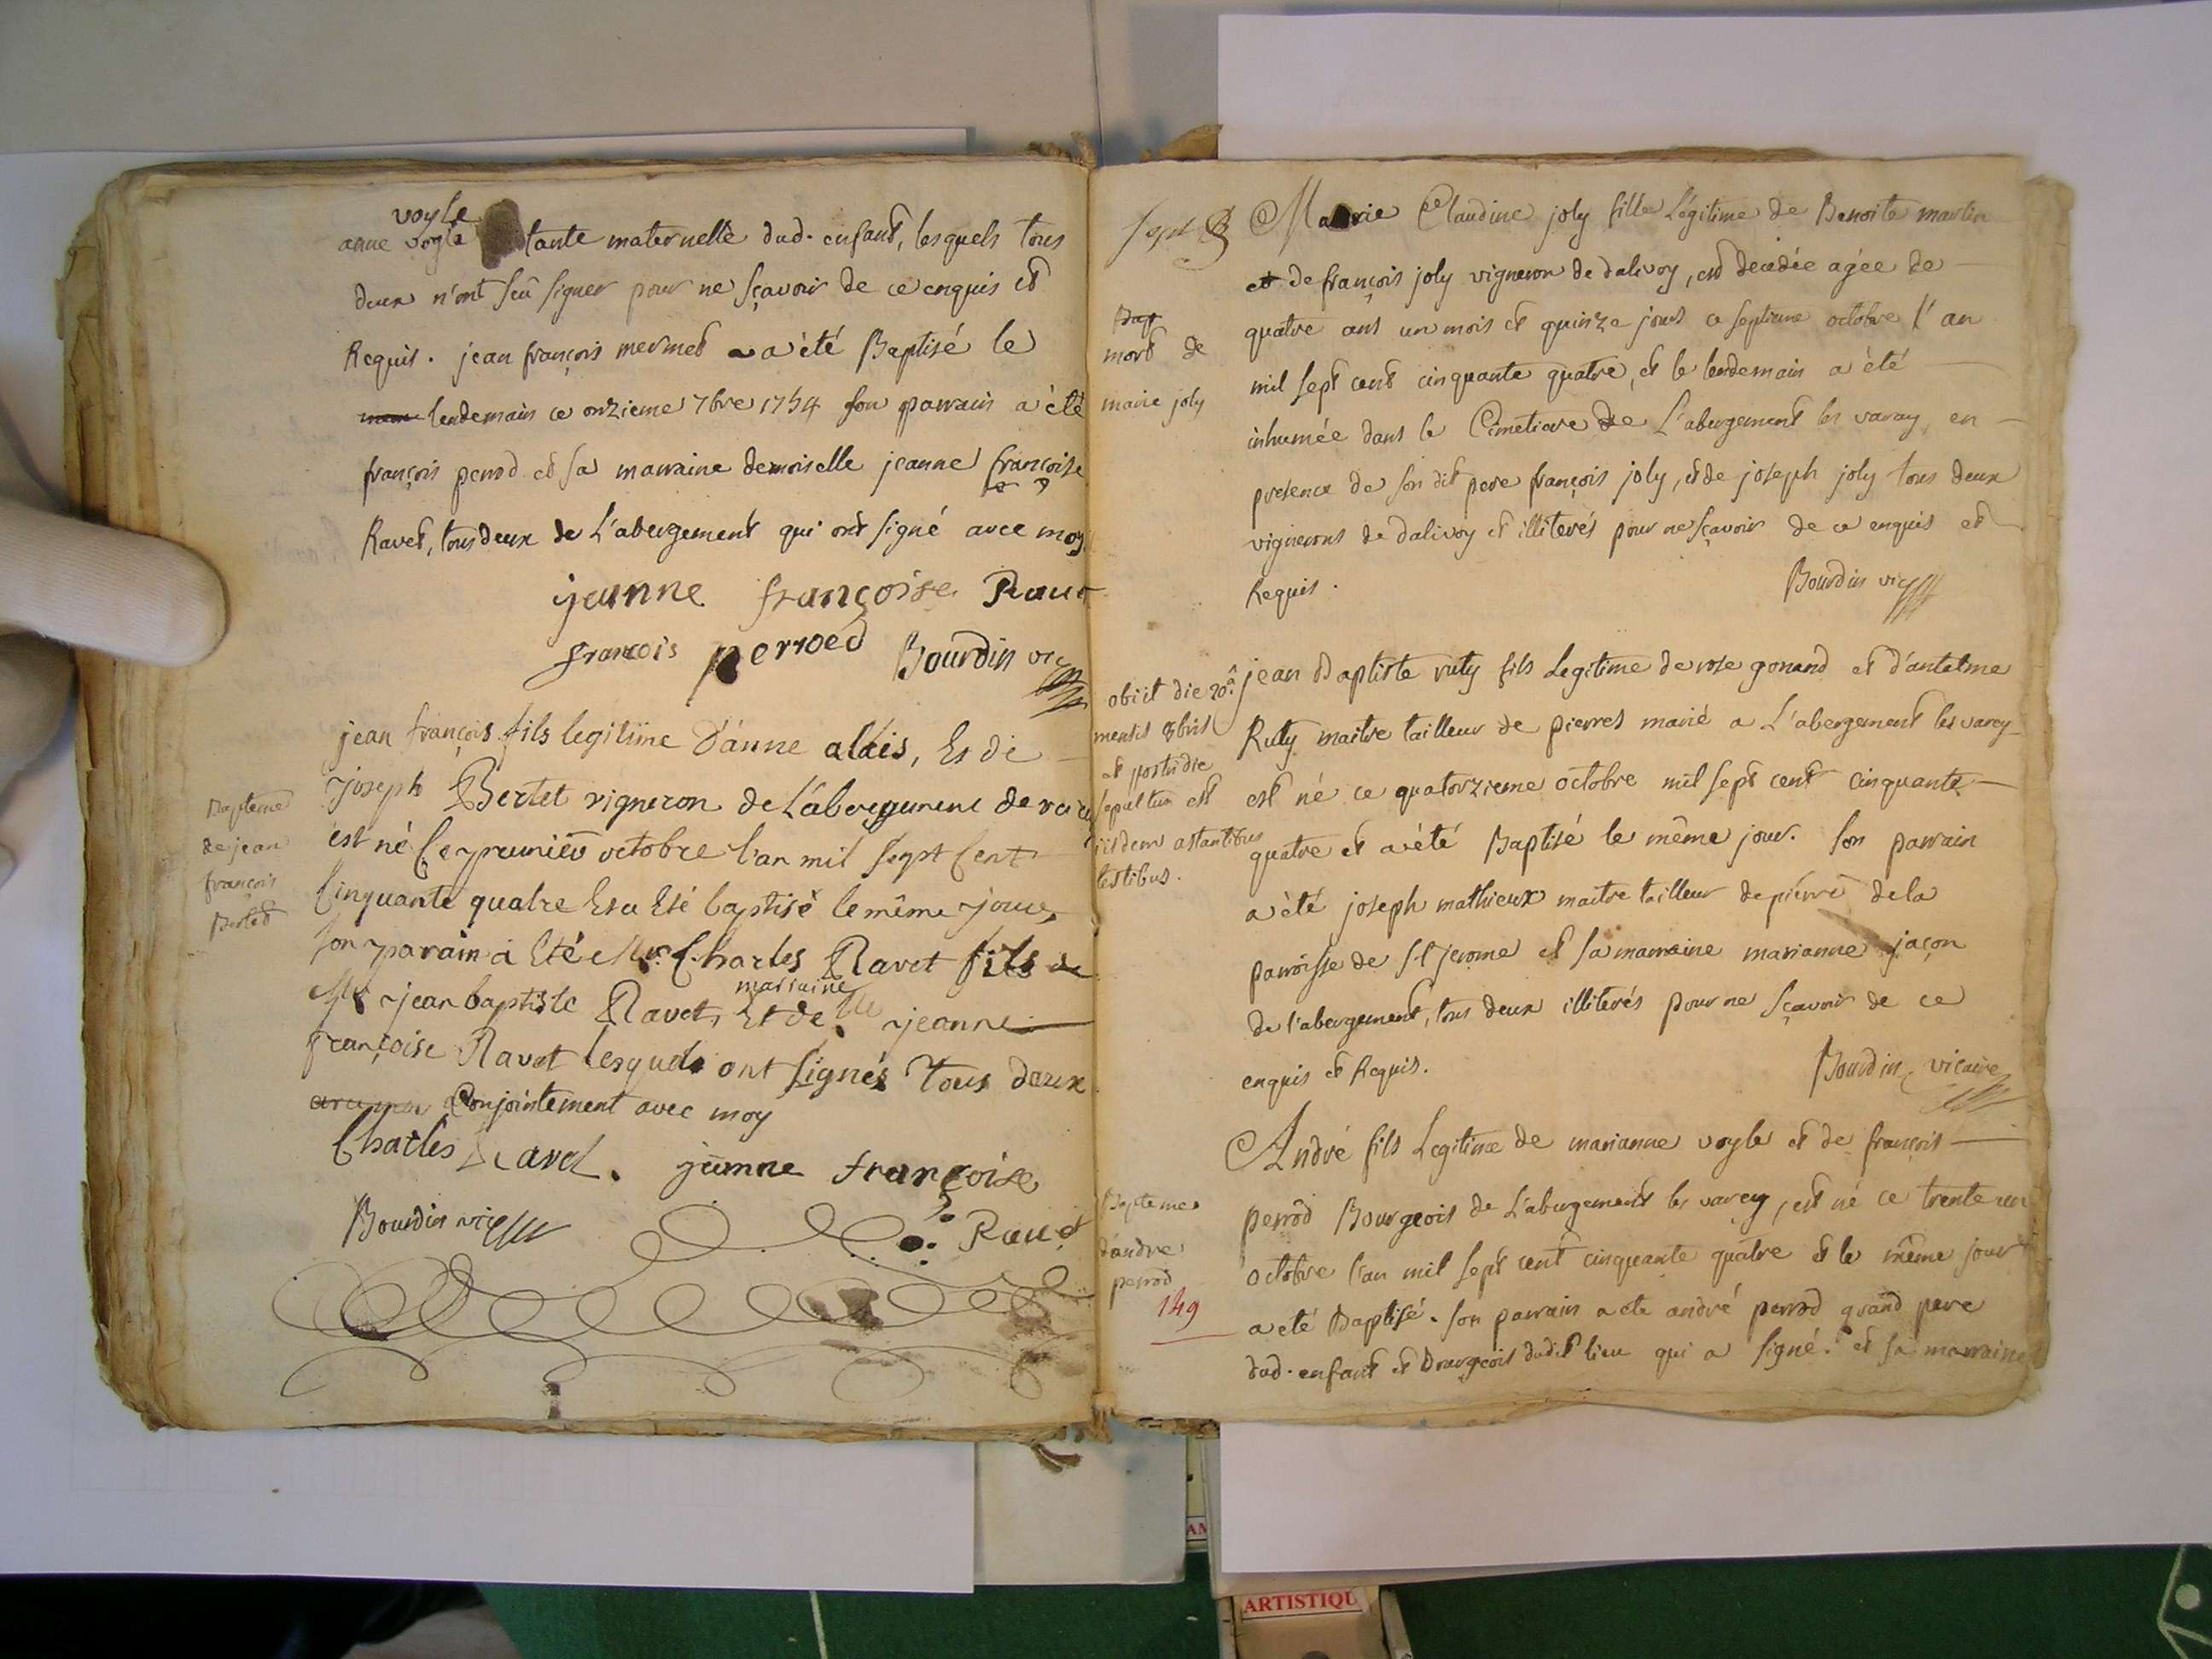 voyle
anne voyle tante maternelle dud. enfant, lesquels tous
deux n'ont sçu signer pour ne sçavoir de ce enquis et
Requis. jean françois mermet a été Baptisé le
lendemain ce onzieme 7bre 1754 son parrain a été
françois perrod et sa marraine demoiselle jeanne françoise
Ravet, tous deux de L'abergement qui ont signé avec moy
jeanne françoise Ravet
francois perroed Bourdin vic
Bapteme
de jean
françois
Bertet
jean françois fils legitime D'anne alais, Et de
joseph Bertet vigneron de L'abergement de varey
est né Le premier octobre l'an mil sept Cent
Cinquante quatre Et a Eté baptisé le même jour,
son parain a Eté Mr. Charles Ravet fils de
marraine
Mr jean baptiste Ravet, Et de lle jeanne
françoise Ravet Lesquels ont signés Tous deux
Conjointement avec moy
Charles Ravet. jeanne françoise
Bourdin vic Ravet
sept
Bap
mort de
marie joly
Marie Claudine joly fille Légitime de Benoite martin
et de françois joly vigneron de dalivoy, est décédée agée de
quatre ans un mois et quinze jours ce septieme octobre l'an
mil sept cent cinquante quatre, et le lendemain a été
inhumée dans le Cimetiere de L'abergement les varay, en
presence de son dit pere françois joly, et de joseph joly tous deux
vignerons de dalivoy et illiterés pour ne sçavoir de ce enquis et
Requis. Bourdin vic
obiit die 20a
mensis 8bris
et postridie
sepultus est
iisdem astantibus
testibus.
jean Baptiste ruty fils Legitime de rose gonand et d'antelme
Ruty maitre tailleur de pierres marié a L'abergement les varey
est né ce quatorzieme octobre mil sept cent cinquante
quatre et a été Baptisé le même jour. son parrain
a été joseph mathieux maitre tailleur de pierre de la
parroisse de St jerome et sa marraine marianne jaçon
de l'abergement, tous deux illiterés pour ne sçavoir de ce
enquis et Requis. Bourdin, vicaire
Bapteme
d'andre
perrod
149
André fils Legitime de marianne voyle et de françois
perrod Bourgeois de L'abergement les varey, est né ce trente un
octobre l'an mil sept cent cinquante quatre et le même jour
a été Baptisé. son parrain a été andré perrod grand pere
dud. enfant et Bourgeois dudit lieu qui a signé. et sa marraine
ARTISTIQU